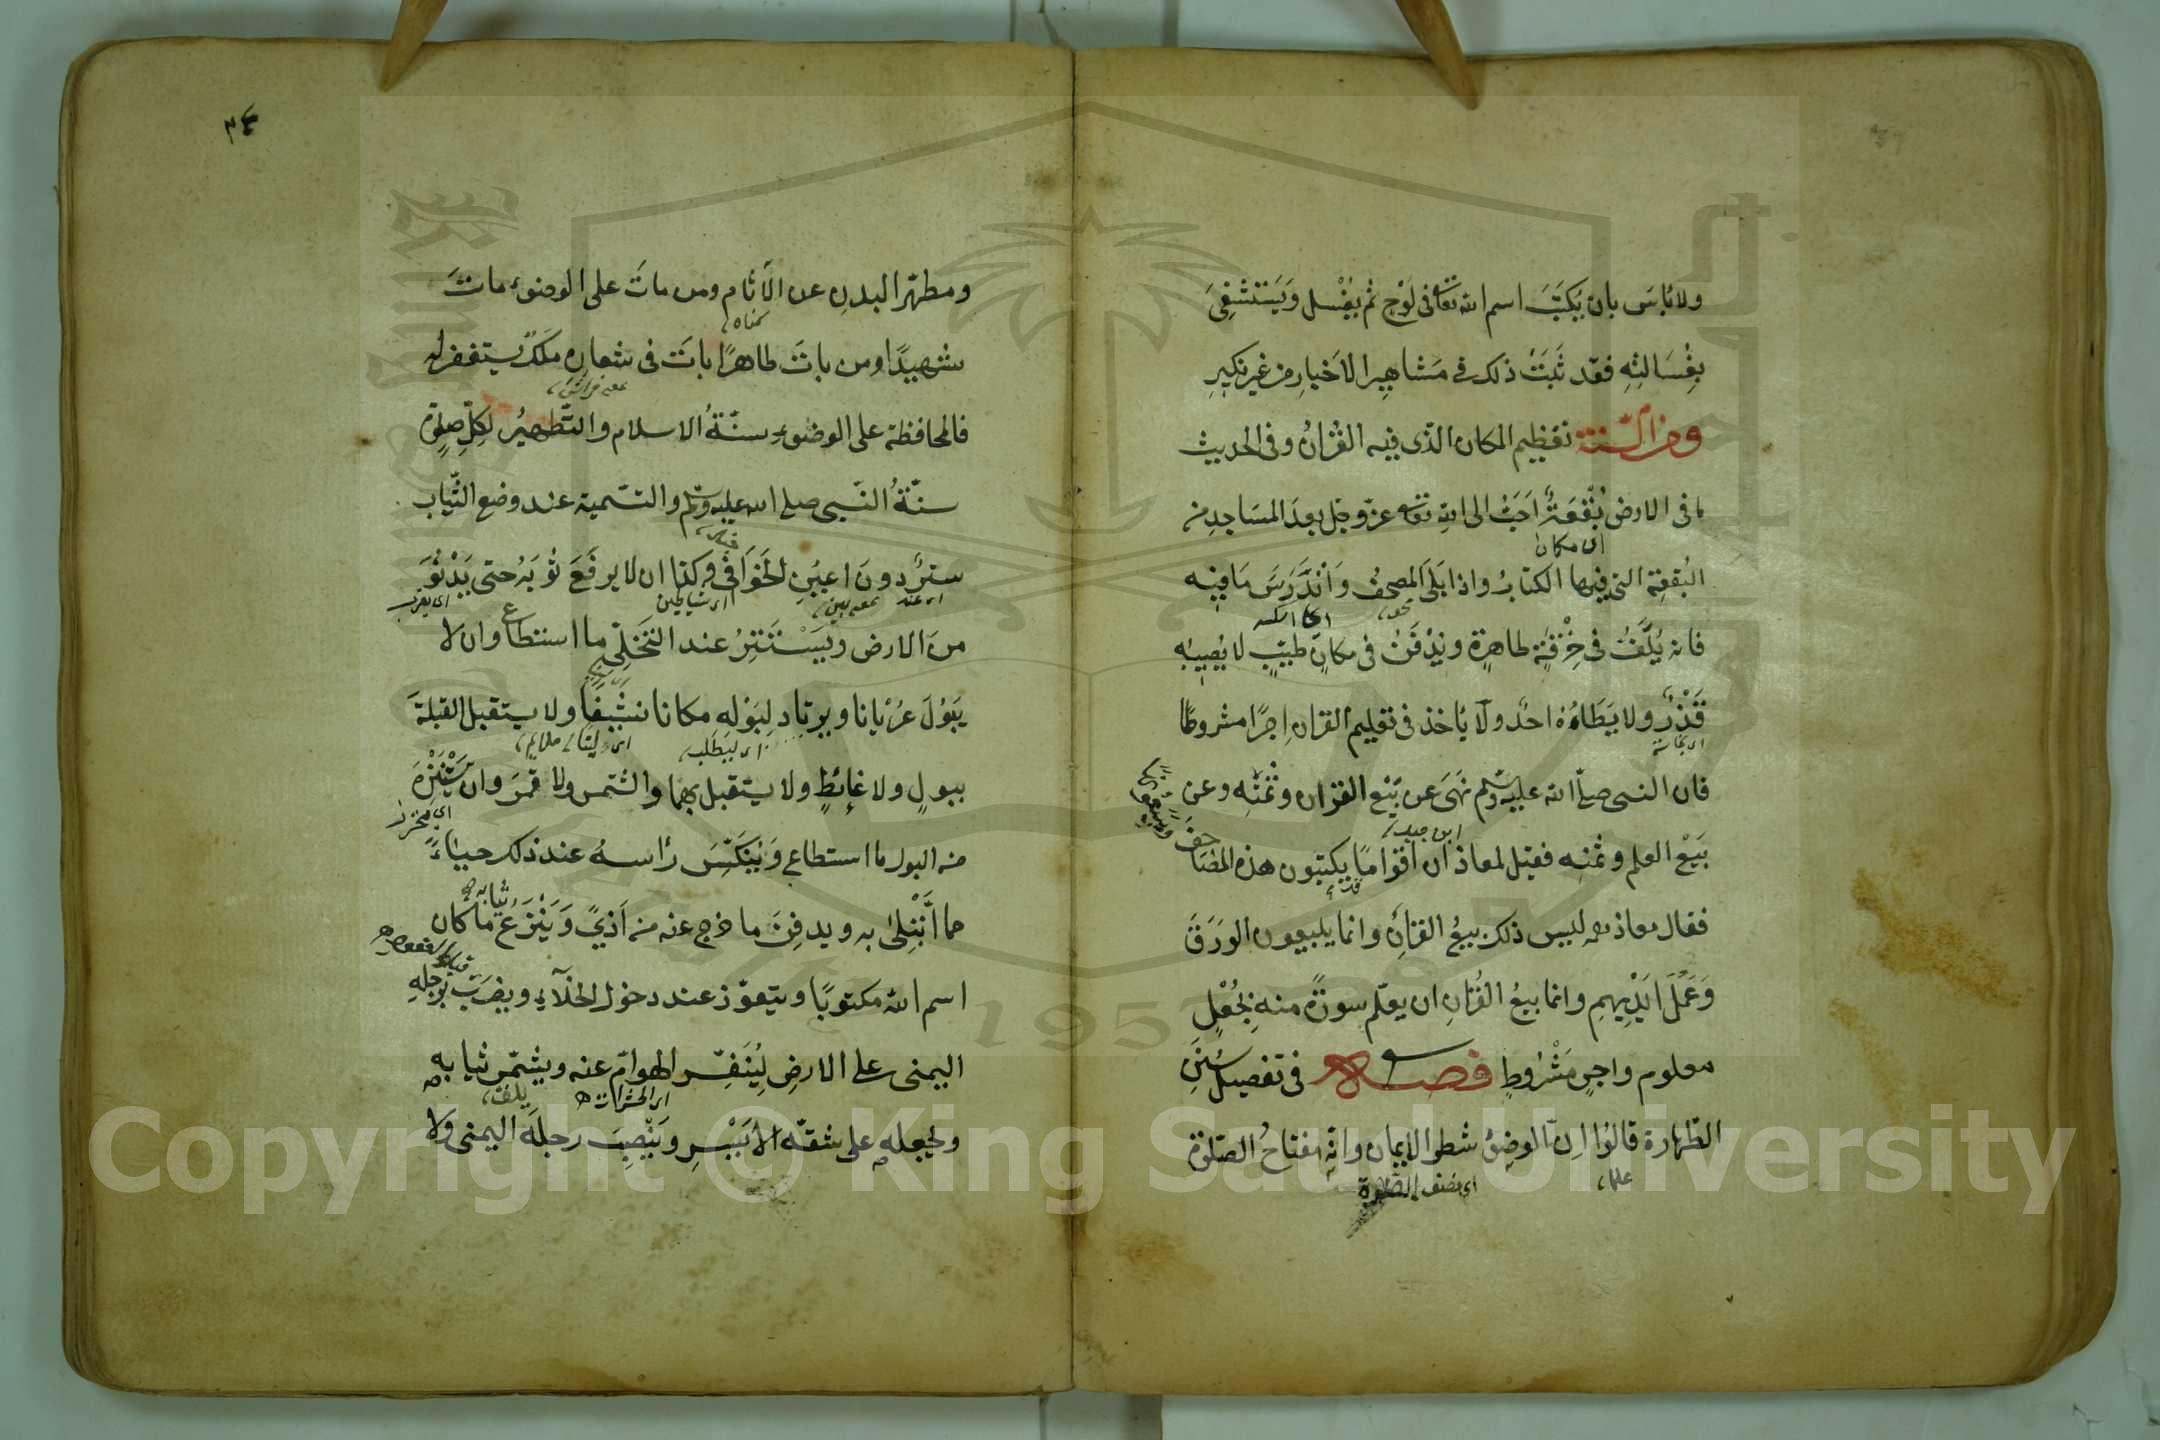 ولا بأس بان يكتبَ اسم الله تعالى فى لَوْحٍ ثم يغْسل وَيَسْتشفِىَ
بِغُسَالتِهِ فقد ثَبَتَ ذلك فى مَشاهِيرِ الاَخبارِ من غير نكيرٍ
ومن السّنّة تعظيم المكان الذى فيه القُرْانُ وفى الحديث
ما فى الارض بُقْعَةٌ اَحَبُّ الى اللهِ تعالى عزّ وجل بعدَ المسَاجدِ من
اى مكان
البُقعةِ التى فيها الكتابُ واذا بَلَى المصحفُ وَانْدَرَسَ مَا فيْهِ
فانه يُلَفُّ فى خِرْقَةٍ طاهرةٍ ويُدْفَنُ فى مكانٍ طيّبٍ لا يُصِيبُه
قَذَرٌ ولا يَطَاءُهُ احدٌ ولا يأخذ فى تعليم القرانِ اجرًا مشروطًا
اى نجاسة
فان النبى صلّى الله عليه وسلّم نَهَى عن بَيْعِ القرْانِ وثمنِه وعن
ابن جبل
بَيْعِ العلم وثمنِه فقيل لمعاذ ان اقوامًا يكتبون هذه المصَاحفَ
فقال معاذ ليس ذلك ببيعُ القرْانِ وانما يبيعون الوَرَقَ
وَعَمَلَ ايْدِيهِم وانما بيعُ القُرْانِ ان يعلّم سورةً منه بِجُعْلٍ
معلوم واجرٍ مَشْروطٍ فصل فى تفصيل سُنَنِ
الطّهارة قالوُا اِنّ الوضوُء شطر الايمان وانّه مفتاحُ الصّلوة
علماء
اى نصف الصّلوة
٣٤
ومطهّر البدنِ عن الآثام ومن ماتَ على الوضوء ماتَ
كناه
شهيدًا ومن باتَ طاهرًا باتَ فى شعارِه ملَكٌ يستغفر له
فالمحافظة على الوضوء سنّةُ الاسلام والتّطهيرُ لكلّ صلوةٍ
سنّةُ النّبى صلى الله عليه وسلّم والتسّمية عند وضع الثّياب
سترٌ دونَ اعيُنِ الخَوَافى وكذا ان لا يرفَعَ ثوبَهُ حتى يَدْنُوَ
اى عند
اى شياطين
اى يقرب
منَ الارض ويَسْتَتِرُ عند التّخلّى ما استطاع وان لا
يَبُوْلَ عُرْيانا ويرتاد لِبَوْلِه مكانا نشيفًا ولا يستقبل القبلةَ
اى ليطلب
ببولٍ ولا غائطٍ ولا يستقبل بهما والشّمس ولا قمرَ وان يَسْتَنْزِهَ
منه البول ما استطاع وَيُنكّسَ رأسهُ عند ذلك حياءً
مما اُبْتُلِىَ به ويدفِنَ ما خرج عنه من اَذىً وَيَنْزَعُ ما كان
ثيابه
اسم الله مكتوبًا ويتعوّذ عند دخول الخلآءِ ويضرَبَ برجلِهِ
اليمنى على الارضِ لِيُنَفِّرَ الهوامّ عنه ويشمّر ثيابه
اى الحشرات
ولجعله على شقّه الأيْسَرِ ويَنْصِبَ رجلَه اليمنى ولا
Copyright © King Saud University
1957